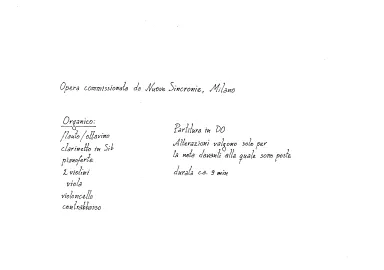 Opera commissionata da Nuove Sincronie, Milano
Organico:
flauto/ottavino
clarinetto in Sib
pianoforte
2 violini
viola
violoncello
contrabbasso
Partitura in DO
Alterazioni valgono solo per
la nota davanti alla quale sono poste
durata c.a. 9 min